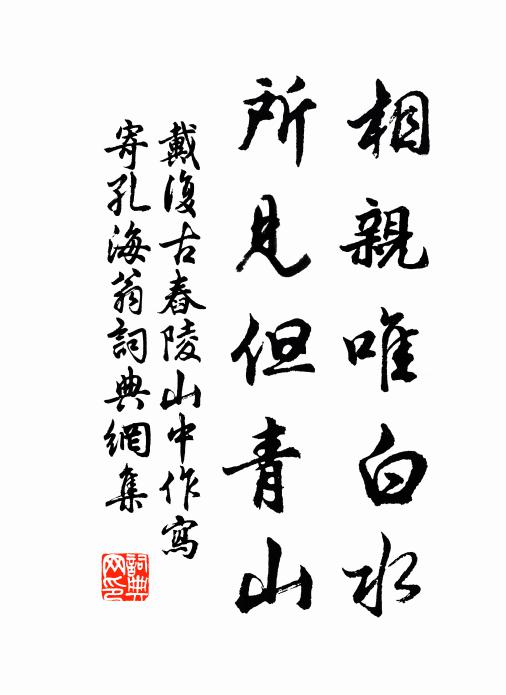 相親唯白水
所見但青山
戴復古舂陵山中作寫
寄孔海翁詞典網集
詞典网印